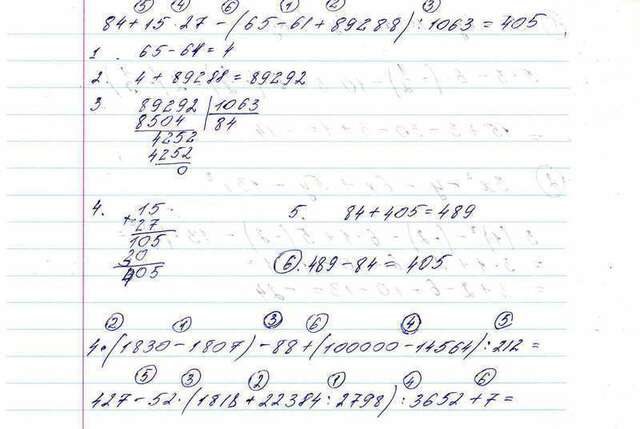 ⑤ ④ ⑥ ① ② ③
84+15·27-(65-61+89288):1063=405
1. 65-61=4
2. 4+89288=89292
3. 89292 | 1063
8504 | 84
4252
4252
0
4. 15
×27
105
30
405
5. 84+405=489
⑥. 489-84=405
② ① ③ ⑥ ④ ⑤
4·(1830-1807)-88+(100000-14564):212=
⑤ ③ ② ① ④ ⑥
427-52·(1818+22384:2798):3652+7=